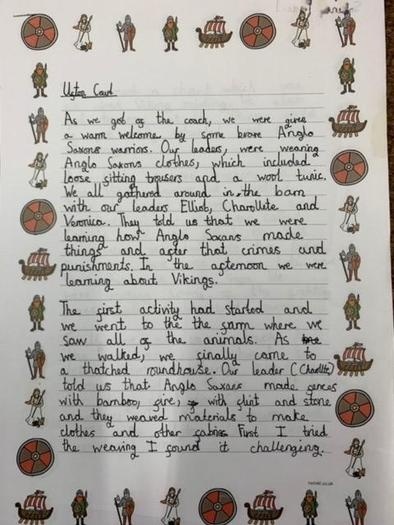 Ufton Court
As we got of the coach, we were given
a warm welcome by some brave Anglo
Saxons warriors. Our leaders, were wearing
Anglo Saxons clothes, which included
loose fitting trousers and a wool tunic.
We all gathered around in the barn
with our leaders Elliot, Charollete and
Veronica. They told us that we were
learning how Anglo Saxons made
things and after that crimes and
punishments. In the afternoon we were
learning about Vikings.
The first activity had started and
we went to the the farm where we
saw all of the animals. As
we walked, we finally came to
a thatched roundhouse. Our leader (Charollete)
told us that Anglo Saxons made fences
with bamboo, fire, with flint and stone
and they weaved materials to make
clothes and other fabrics First I tried
the weaving I found it challenging.